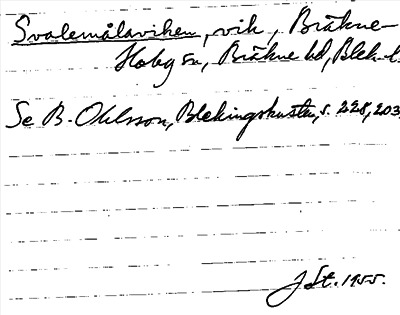 Svalemålaviken, vik, Bräkne-
Hoby sn, Bräkne hd, Blek. l.
Se B. Ohlsson, Blekingskusten, s. 228, 203
J St. 1955.